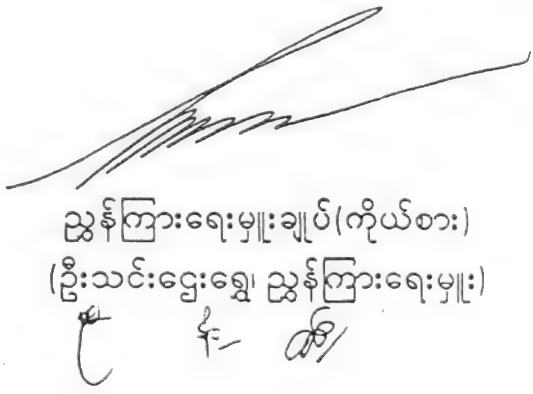 ညွှန်ကြားရေးမှူးချုပ်(ကိုယ်စား)
(ဦးသင်းဌေးရွှေ၊ ညွှန်ကြားရေးမှူး)